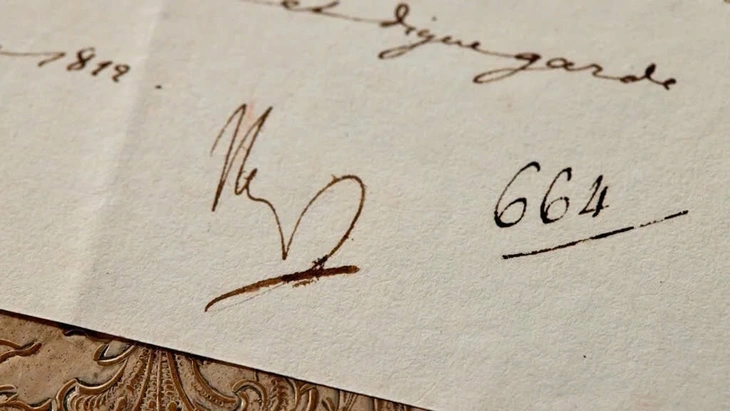 et digne garde
1812.
Np
664